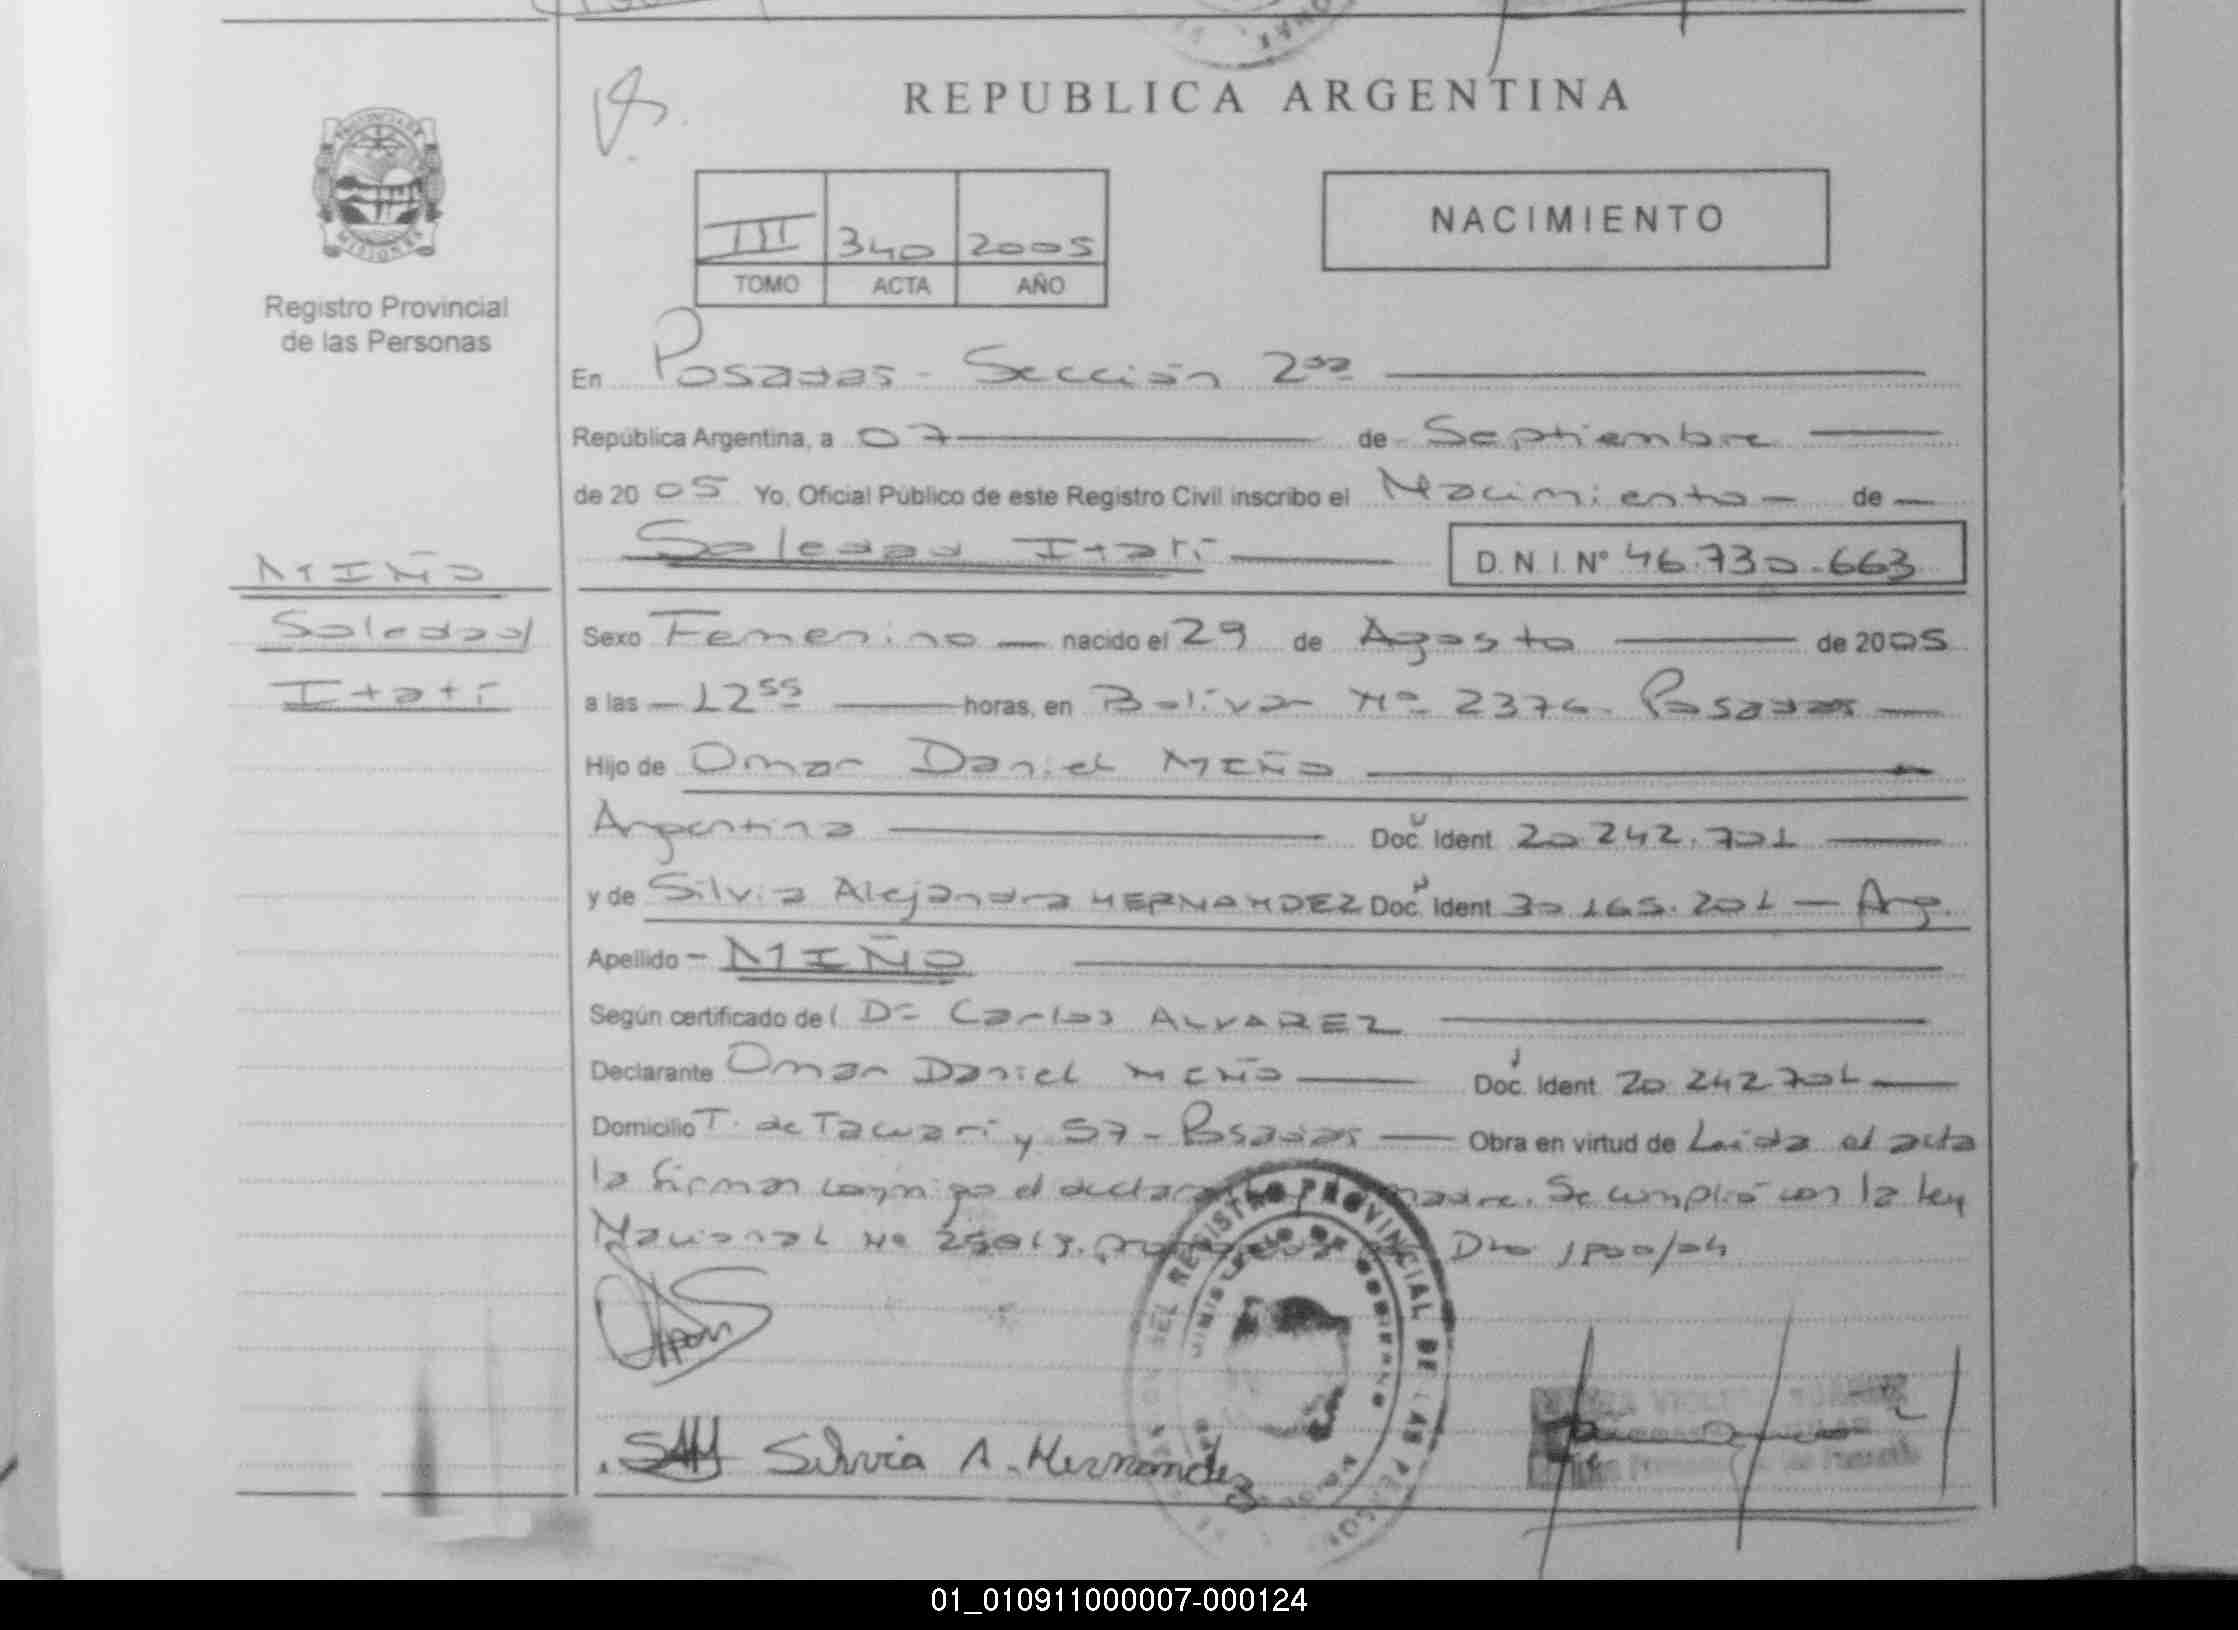 REPUBLICA ARGENTINA
PROVINCIA DE
MISIONES
Registro Provincial
de las Personas
III 340 2005
TOMO ACTA AÑO
NACIMIENTO
En Posadas - Sección 2da
República Argentina, a 07 de Septiembre
de 20 05 Yo, Oficial Público de este Registro Civil inscribo el Nacimiento de
Soledad Itatí D.N.I. Nº 46.730.663
MIÑO
Soledad
Itatí
Sexo Femenino nacido el 29 de Agosto de 2005
a las 12 55 horas, en Bolívar Nº 2376 - Posadas
Hijo de Omar Daniel MIÑO
Argentina Doc. Ident 20.242.701
y de Silvia Alejandra HERNANDEZ Doc. Ident 30.165.201 - Arg.
Apellido - MIÑO
Según certificado del Dr Carlos ALVAREZ
Declarante Omar Daniel MIÑO Doc. Ident. 20.242.701
Domicilio T. de Tacuarí y 57 - Posadas Obra en virtud de Leída el acta
la firman conmigo el madre. Se cumplió con la ley
Nacional Nº Dto
DEL REGISTRO PROVINCIAL DE LAS PERSONAS
MINISTERIO DE GOBIERNO
Silvia A. Hernandez
01_010911000007-000124